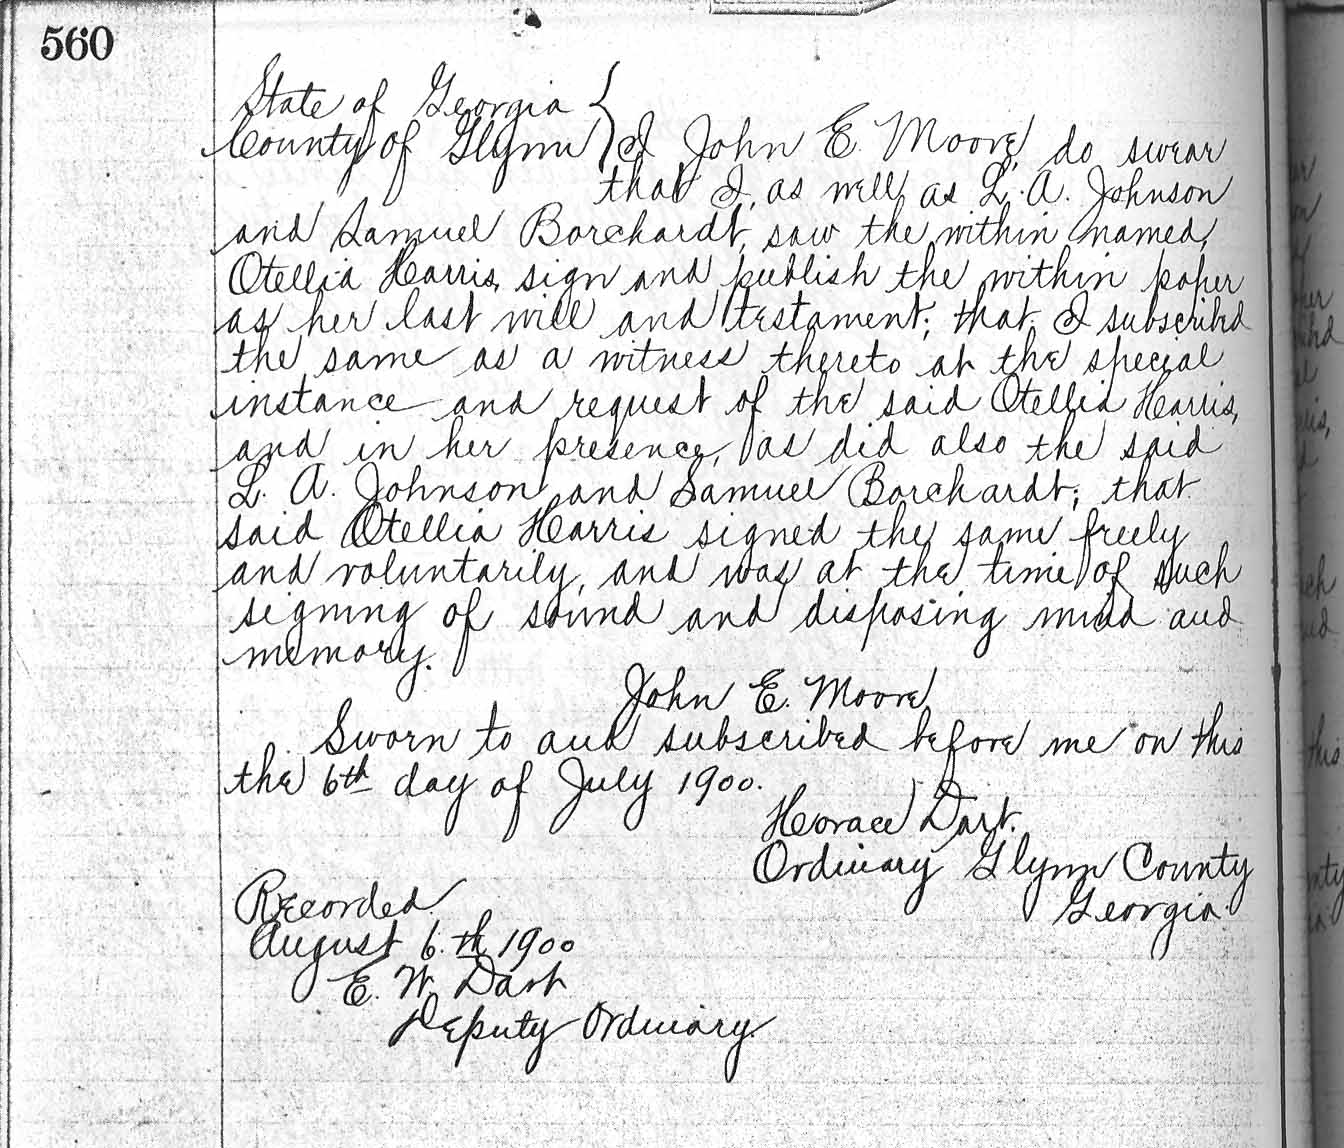 560
State of Georgia
County of Glynn } I John E. Moore, do swear
that I, as well, as L. A. Johnson
and Samuel Borchardt, saw the within named,
Otellia Harris, sign and publish the within paper
as her last will and testament; that I subscribed
the same as a witness thereto at the special
instance and request of the said Otellia Harris,
and in her presence, as did also the said
L. A. Johnson and Samuel Borchardt; that
said Otellia Harris signed the same freely
and voluntarily, and was at the time of such
signing of sound and disposing mind and
memory.
John E. Moore
Sworn to and subscribed before me on this
the 6th day of July 1900.
Horace Dart.
Ordinary Glynn County
Georgia.
Recorded
August 6.th 1900
E. W. Dart
Deputy Ordinary